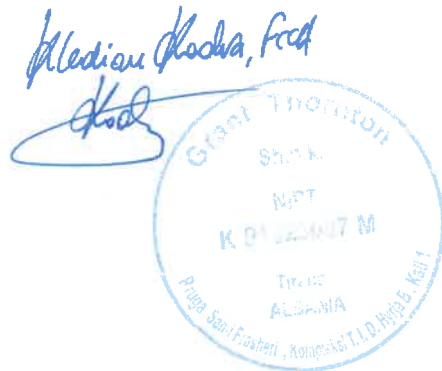 Kledian Kodra, FCCA
Grant Thornton
Sh.p.k.
NIPT
K M
Tirane
ALBANIA
Rruga Sami Frasheri, Kompleksi T.I.D, Hyrja B, Kati 1